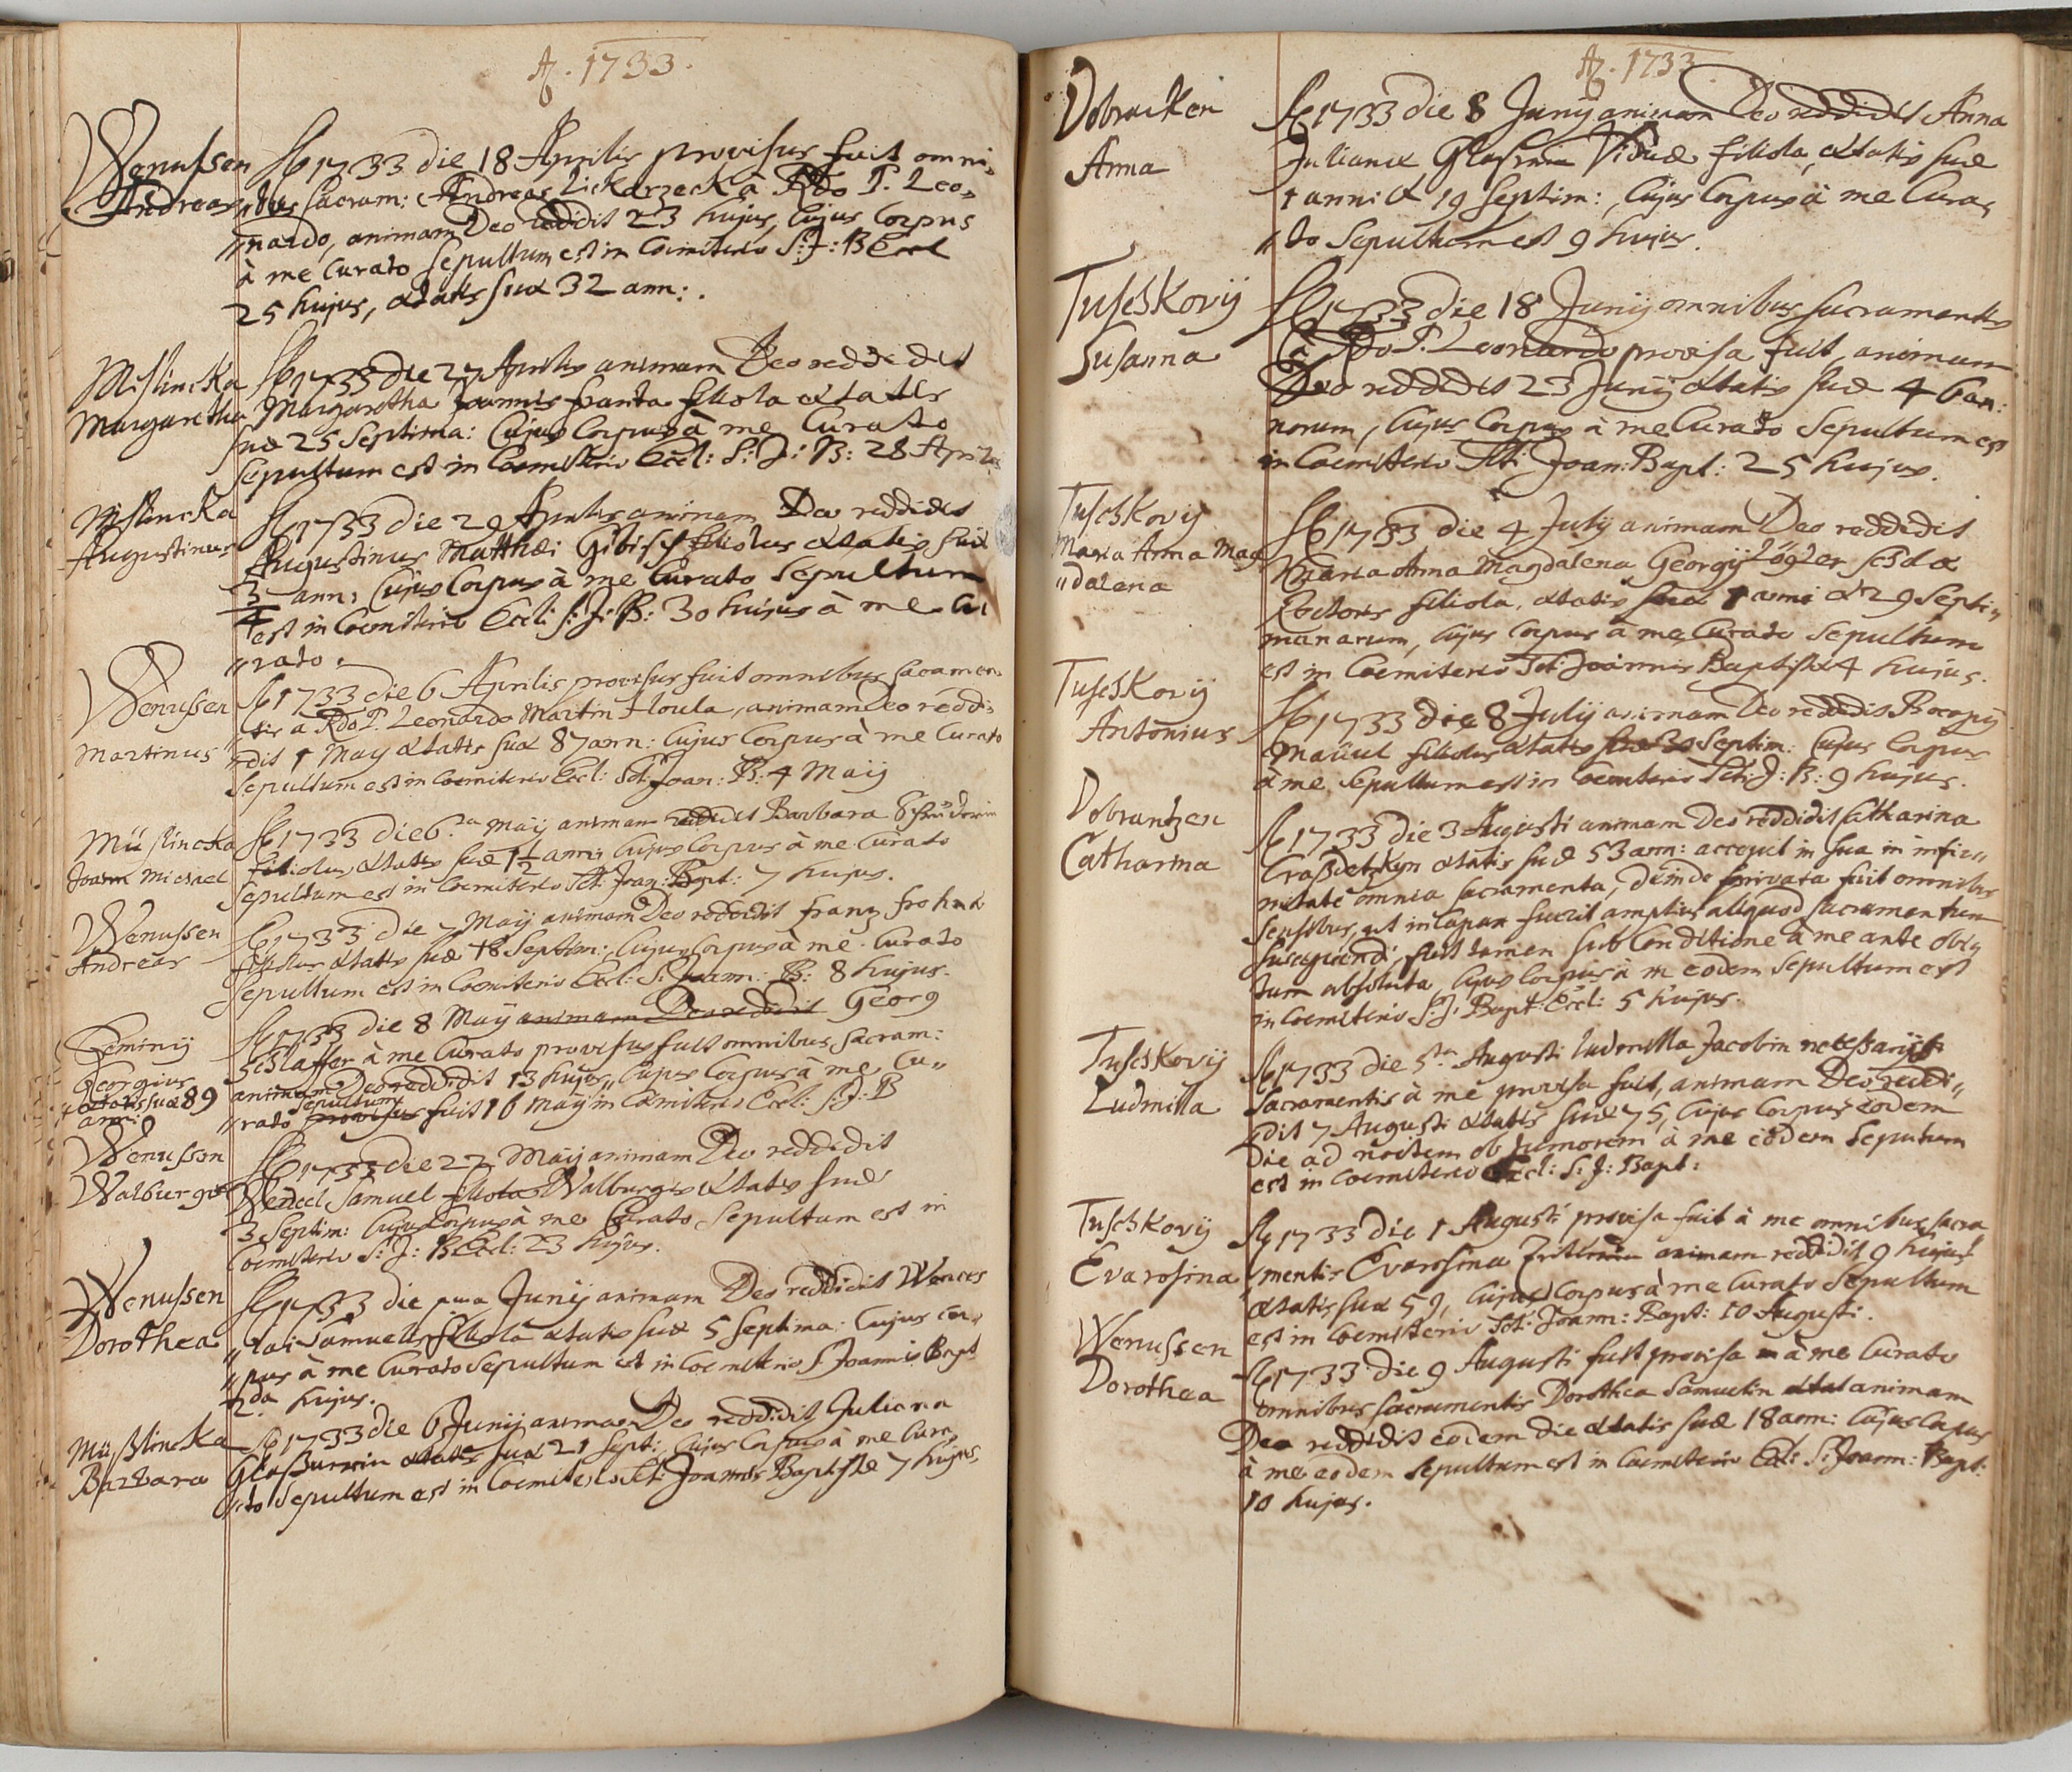 Aõ. 1733.
Wenussen
Andreas
Aõ 1733 die 18 Aprilis provisus fuit omni-
„bus sacram: Andreas Lickarzeck à Rdo P. Leo-
„nardo, animam Deo reddit 23 hujus, Cujus Corpus
à me Curato sepultum est in Coemiterio S: J: B Eccl
25 hujus, ætatis suæ 32 ann:.
Mislincka
Margaretha
Aõ 1733 die 27 Aprilis animam Deo reddidit
Margaretha Joannis franta filiola ætatis
suæ 25 Septima: Cujus Corpus à me Curato
Sepultum est in Coemiterio Eccl: S: J: B: 28 Aprilis
Mislincka
Augustinus
Aõ 1733 die 29 Aprilis animam Deo reddidit
Augustinus Matthæi Gibisch filiolus ætatis suæ
3/4 ann: Cujus Corpus à me Curato Sepultum
est in Coemiterio Eccl: S: J: B: 30 hujus à me Cu
„rato.
Wenussen
Martinus
Aõ 1733 die 6 Aprilis provisus fuit omnibus sacramen-
„tis a Rdo P. Leonardo Martin Houla, animam Deo reddi-
„dit 1 May ætatis suæ 87 ann: Cujus Corpus à me Curato
Sepultum est in Coemiterio Eccl: Sti Joan: B: 4 Maij
Müslincka
Joann Michael
Aõ 1733 die 6ta Maij animam reddidit Barbara
filiolus, ætatis suæ 1 1/2 ann: Cujus Corpus à me Curato
Sepultum est in Coemiterio Sti: Joan: Bapt: 7 hujus.
Wenussen
Andreas
Aõ 1733 die 7 Maij animam Deo reddidit franz frohna
filiolus ætatis suæ 18 Septim: Cujus Corpus à me Curato
Sepultum est in Coemiterio Eccl: S: Joann: B: 8 hujus.
Georgius
ætatis suæ 89
anni
Aõ 1733 die 8 Maij animam Deo reddidit Georg
Schlaffer à me Curato provisus fuit omnibus sacram:
animam Deo reddidit 13 hujus, Cujus Corpus à me Cu„
sepultum
„rato provisus fuit 16 Maij in Coemiterio Eccl: S: J: B
Wenussen
Walburgis
Aõ 1733 die 22 Maij animam Deo reddidit
Wenzel Samuel filiola Walburgis ætatis suæ
3 Septim: Cujus Corpus à me Curato, Sepultum est in
Coemiterio S: J: B Eccl: 23 hujus.
Wenussen
Dorothea
Aõ 1733 die Junij animam Deo reddidit Wences
„lai Samuelis filiola ætatis suæ 5 Septima: Cujus Cor„
„pus à me Curato Sepultum est in Coemiterio S. Joannis Bapt
2da hujus.
Müßlincka
Barbara
Aõ 1733 die 6 Junij animam Deo reddidit Juliana
ætatis suæ 21 Sept: Cujus Corpus à me Cura„
„to Sepultum est in Coemiterio Sti: Joannis Baptistæ 7 hujus.
Aõ. 1733
Dobracken
Anna
Aõ 1733 die 8 Junij animam Deo reddidit Anna
Julianæ Viduæ filiola ætatis suæ
1 anni & 19 Septim:, Cujus Corpus à me Cura„
„to Sepultum est 9 hujus.
Tuschkovij
Susanna
Aõ 1733 die 18 Junij omnibus sacramentis
à Rdo P. Leonardo provisa fuit, animam
Deo reddidit 23 Junij ætatis suæ 46 an:
norum, Cujus Corpus à me Curato Sepultum est
in Coemiterio Sti: Joan: Bapt: 25 hujus.
Tuschkovij
Maria Anna Mag
„dalena
Aõ 1733 die 4 Julij animam Deo reddidit
Maria Anna Magdalena Georgij Lögler scholæ
Rectoris filiola, ætatis suæ 1 anni & 29 Septi„
manarum, Cujus Corpus à me Curato Sepultum
est in Coemiterio Sti: Joannis Baptistæ 4 hujus.
Tuschkovij
Antonius
Aõ 1733 die 8 Julij animam Deo reddidit Procopij
filiolus ætatis suæ 30 Septim: Cujus Corpus
à me, Sepultum est in Coemiterio Sti: J: B: 9 hujus.
Dobrantzen
Catharina
Aõ 1733 die 3 Augusti animam Deo reddidit Catharina
ætatis suæ 53 ann: accepit in sua in infir„
mitate omnia sacramenta, deinde privata fuit omnibus
sensibus, ut incapax fuerit amplius aliquod sacramentum
suscipiendi, fuit tamen sub Conditione à me ante obi„
tum absoluta, Cujus Corpus à me eodem Sepultum est
in Coemiterio S: J: Bapt: Eccl: 5 hujus.
Tuschkovij
Ludmilla
Aõ 1733 die 5ta Augusti Ludmilla Jacobin necessarijs
Sacramentis à me provisa fuit, animam Deo reddi„
„dit 7 Augusti ætatis suæ 75, Cujus Corpus eodem
die ad noctem ob tumorem à me eodem Sepultum
est in Coemiterio Eccl: S: J: Bapt:
Tuschkovij
Evarosina
Aõ 1733 die 1 Augusti provisa fuit à me omnibus sacra
„mentis Evarosina animam reddidit 9 hujus
ætatis suæ 59, Cujus Corpus à me Curato Sepultum
est in Coemiterio Sti: Joann: Bapt: 10 Augusti.
Wenussen
Dorothea
Aõ 1733 die 9 Augusti fuit provisa à me Curato
omnibus sacramentis Dorothea Samuelin ætat animam
Deo reddidit eodem die ætatis suæ 18 ann: Cujus Corpus
à me eodem Sepultum est in Coemiterio Eccl: S: Joann: Bapt:
10 hujus.